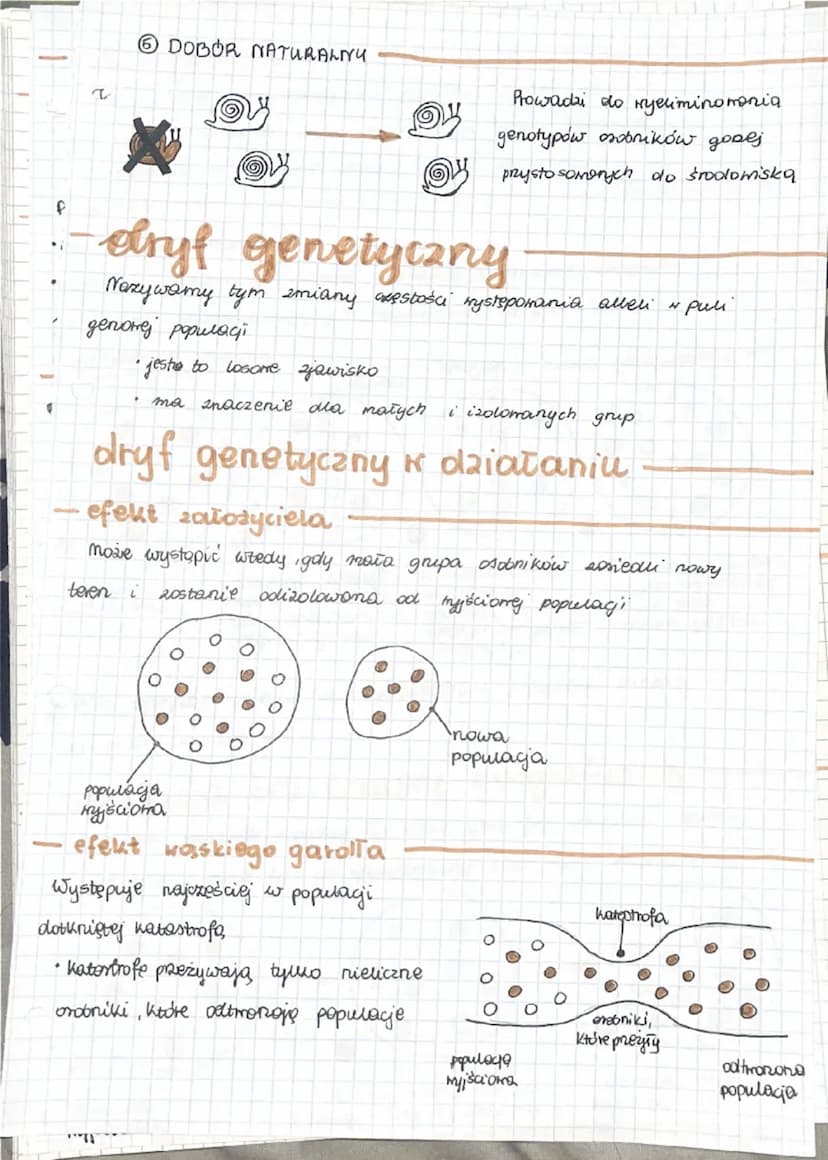 ⑤ DOBÓR NATURALNY
Prowadzi do wyeliminowania
genotypów osobników gorzej
przystosowanych do środowiska
dryf genetyczny
Nazywamy tym zmiany częstości występowania alleli w puli
genowej populacji
• jest to losowe zjawisko
• ma znaczenie dla małych i izolowanych grup
dryf genetyczny w działaniu
efekt założyciela
Może wystąpić wtedy, gdy mała grupa osobników zasiedli nowy
teren i zostanie odizolowana od wyjściowej populacji
nowa
populacja
populacja
wyjściowa
efekt wąskiego gardła
Występuje najczęściej w populacji
dotkniętej katastrofą
• katastrofę przeżywają tylko nieliczne
osobniki, które odtworzają populacje
katastrofa
osobniki,
które przeżyły
populacja
wyjściowa
odtworzona
populacja